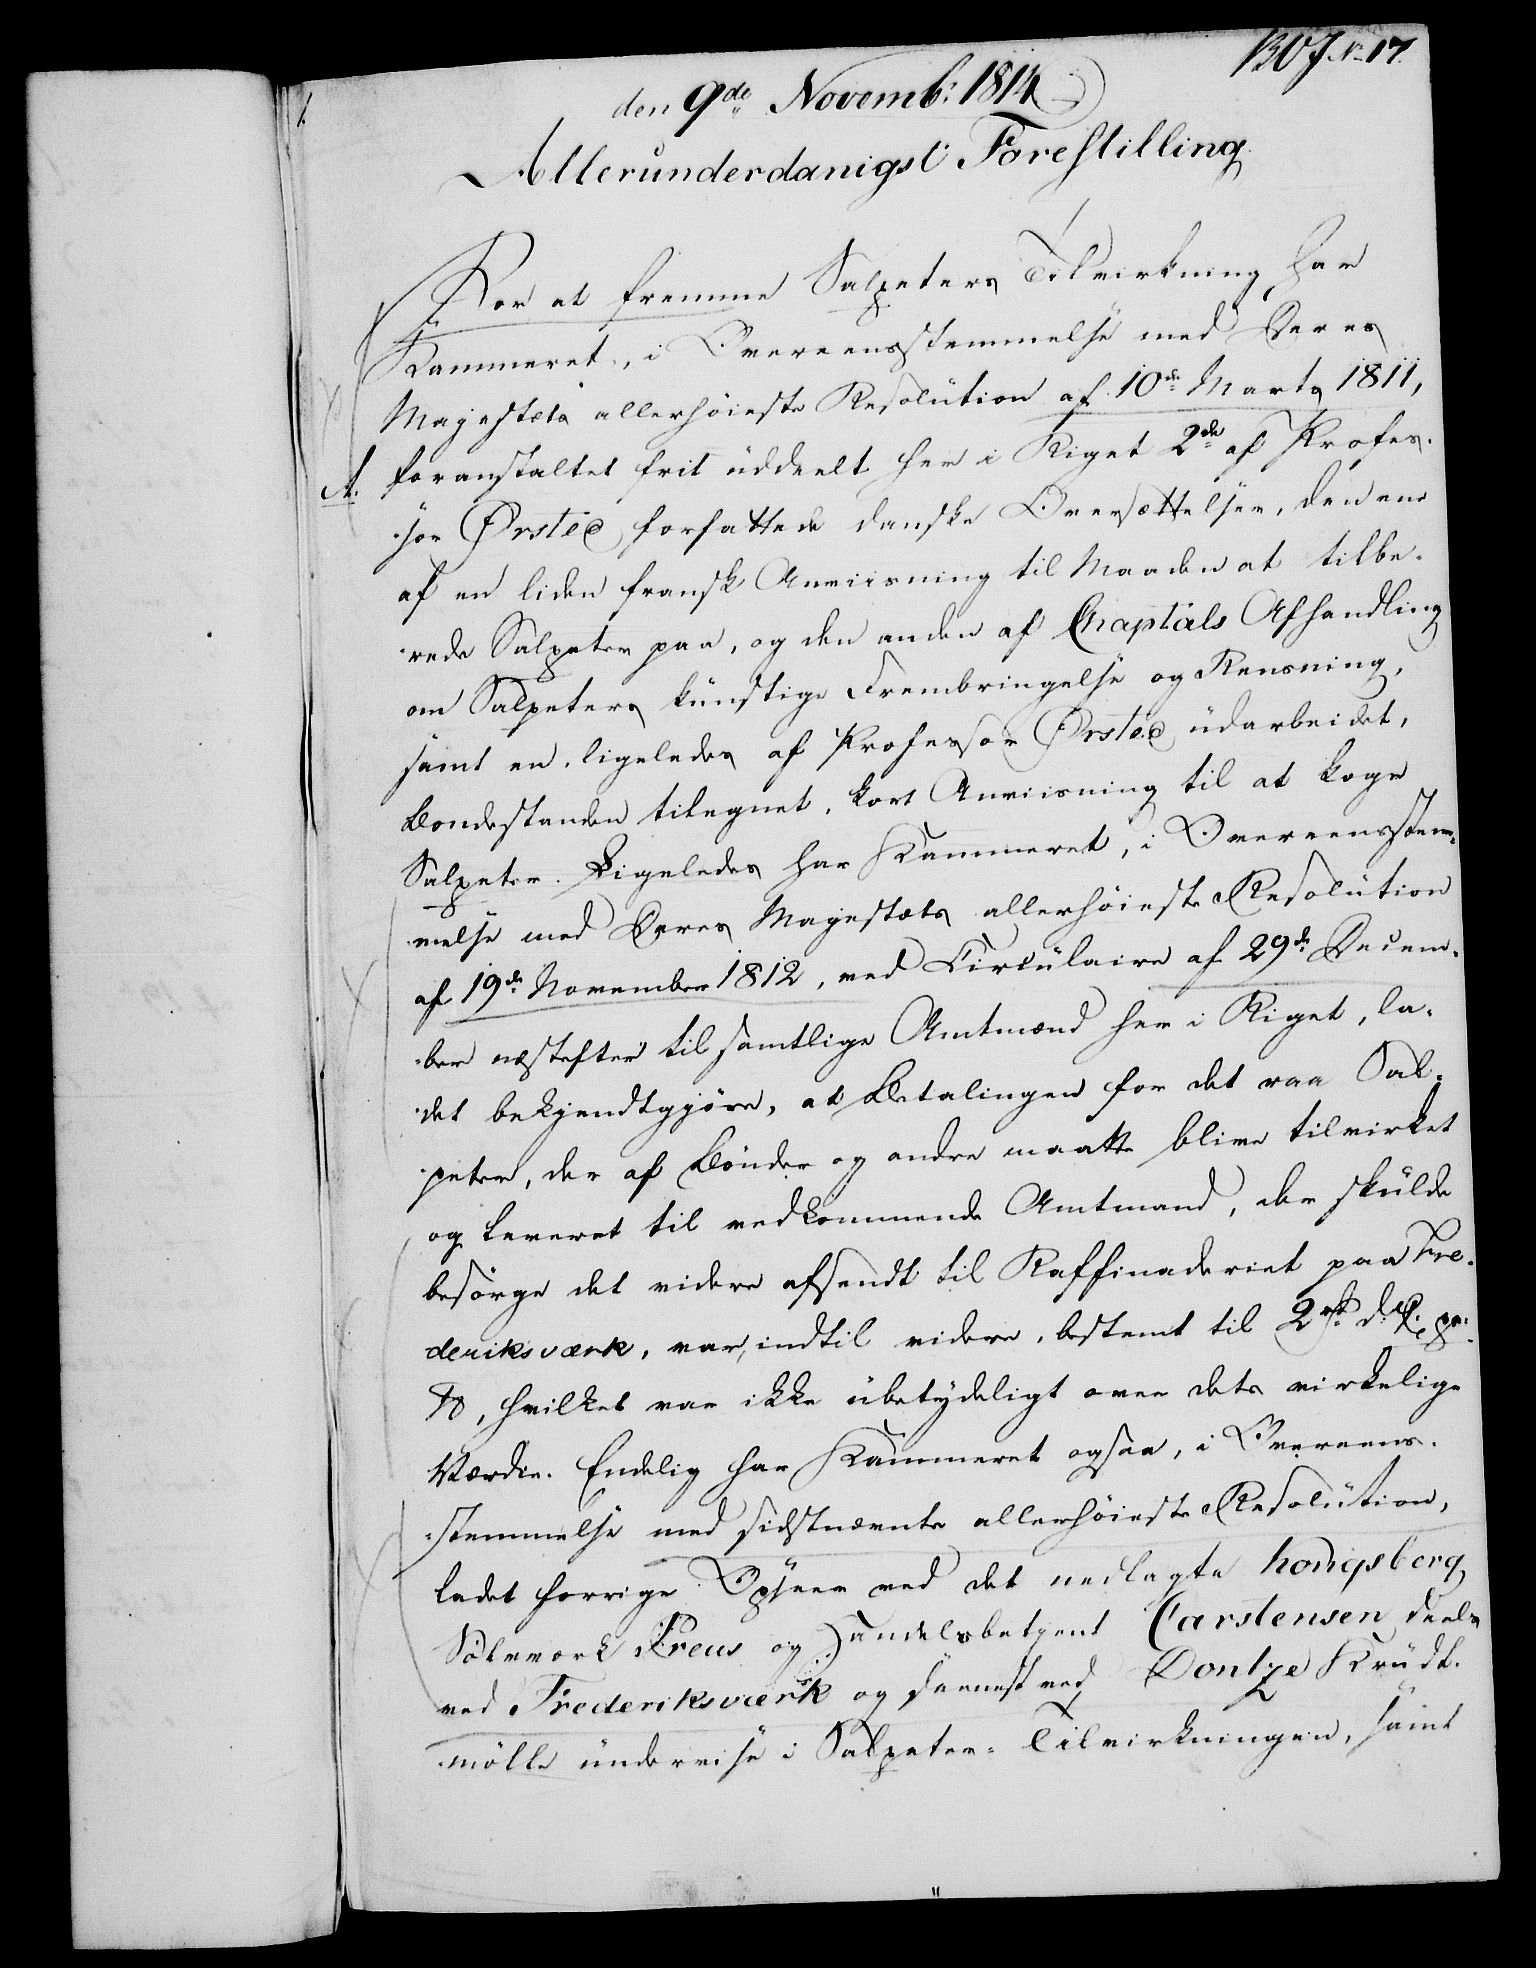 BOJ. No 17.
den 9de Novemb: 1814
1.
Allerunderdanigst Forestilling
For at fremme Salpeters Tilvirkning har
Kammeret, i Overeensstemmelse med Deres
Majestets allerhöieste Resolution af 10de Marts 1811,
A. foranstaltet frit uddeelt her i Riget 2de af Profes-
sor Ørsted forfattede danske Oversættelser, den ene
af en liden fransk Anviisning til Maaden at tilbe-
rede Salpeter paa, og den anden af Chaptals Afhandling
om Salpeters kunstige Frembringelse og Rensning,
samt en, ligeledes af Professor Ørsted udarbeidet,
Bondestanden tilegnet, kort Anviisning til at koge
Salpeter. Ligeledes har Kammeret, i Overeensstem-
melse med Deres Majestæts allerhöieste Resolution
af 19de November 1812, ved Circulaire af 29de Decem-
ber næstefter til samtlige Amtmænd her i Riget, la-
det bekjendtgjöre, at Betalingen for det raa Sal-
peter, der af Bönder og andre maatte blive tilvirket
og leveret til vedkommende Amtmand, der skulde
besörge det videre afsendt til Raffinaderiet paa Fre-
deriksværk, var, indtil videre, bestemt til 2rd d.C. pr:
℔, hvilket var ikke ubetydeligt over dets virkelige
Værdie. Endelig har Kammeret ogsaa, i Overeens-
stemmelse med sidstnævnte allerhöieste Resolution,
ladet forrige Opseer ved det nedlagte Kongsberg
Sölvværk Preus og Handelsbetjent Carstensen deels
ved Frederiksværk og dernæst ved Dontze Krudt-
mölle undervise i Salpeter-Tilvirkningen, samt